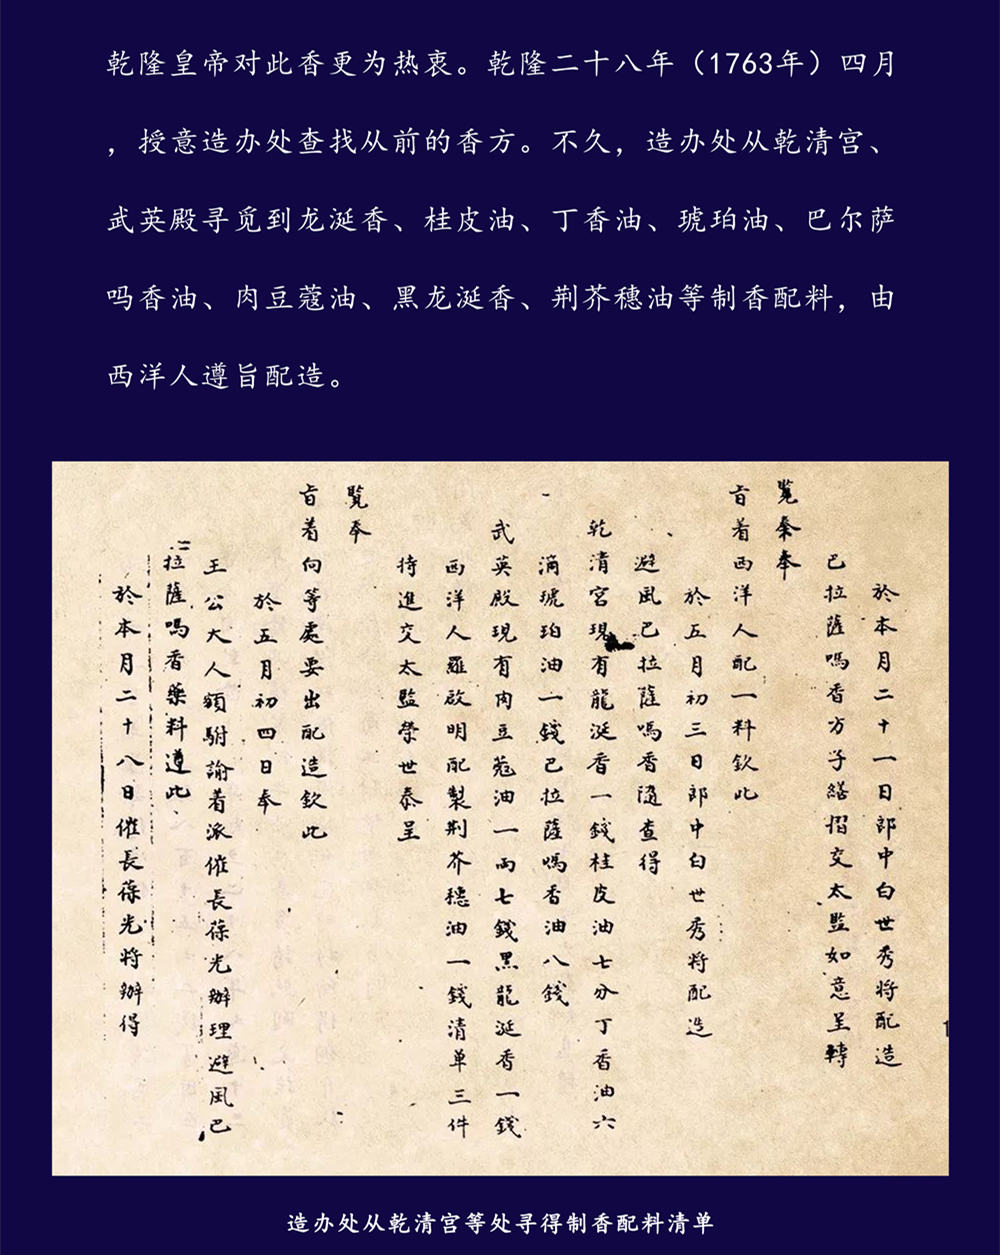 乾隆皇帝对此香更为热衷。乾隆二十八年（1763年）四月
，授意造办处查找从前的香方。不久，造办处从乾清宫、
武英殿寻觅到龙涎香、桂皮油、丁香油、琥珀油、巴尔萨
吗香油、肉豆蔻油、黑龙涎香、荆芥穗油等制香配料，由
西洋人遵旨配造。
於本月二十一日郎中白世秀将配造
巴拉薩嗎香方子繕摺交太監如意呈轉
覽奏奉
旨着西洋人配一料欽此
於五月初三日郎中白世秀将配造
避風巴拉薩嗎香随查得
乾清宮現有龍涎香一錢桂皮油七分丁香油六
滴琥珀油一錢巴拉薩嗎香油八錢
武英殿現有肉豆蔻油一两七錢黑龍涎香一錢
西洋人羅啟明配製荆芥穗油一錢清单三件
持進交太監榮世泰呈
覽奉
旨着向等處要出配造欽此
於五月初四日奉
王公大人額駙諭着派催長葆光辦理避風巴
拉薩嗎香藥料遵此
於本月二十八日催長葆光将辦得
造办处从乾清宫等处寻得制香配料清单